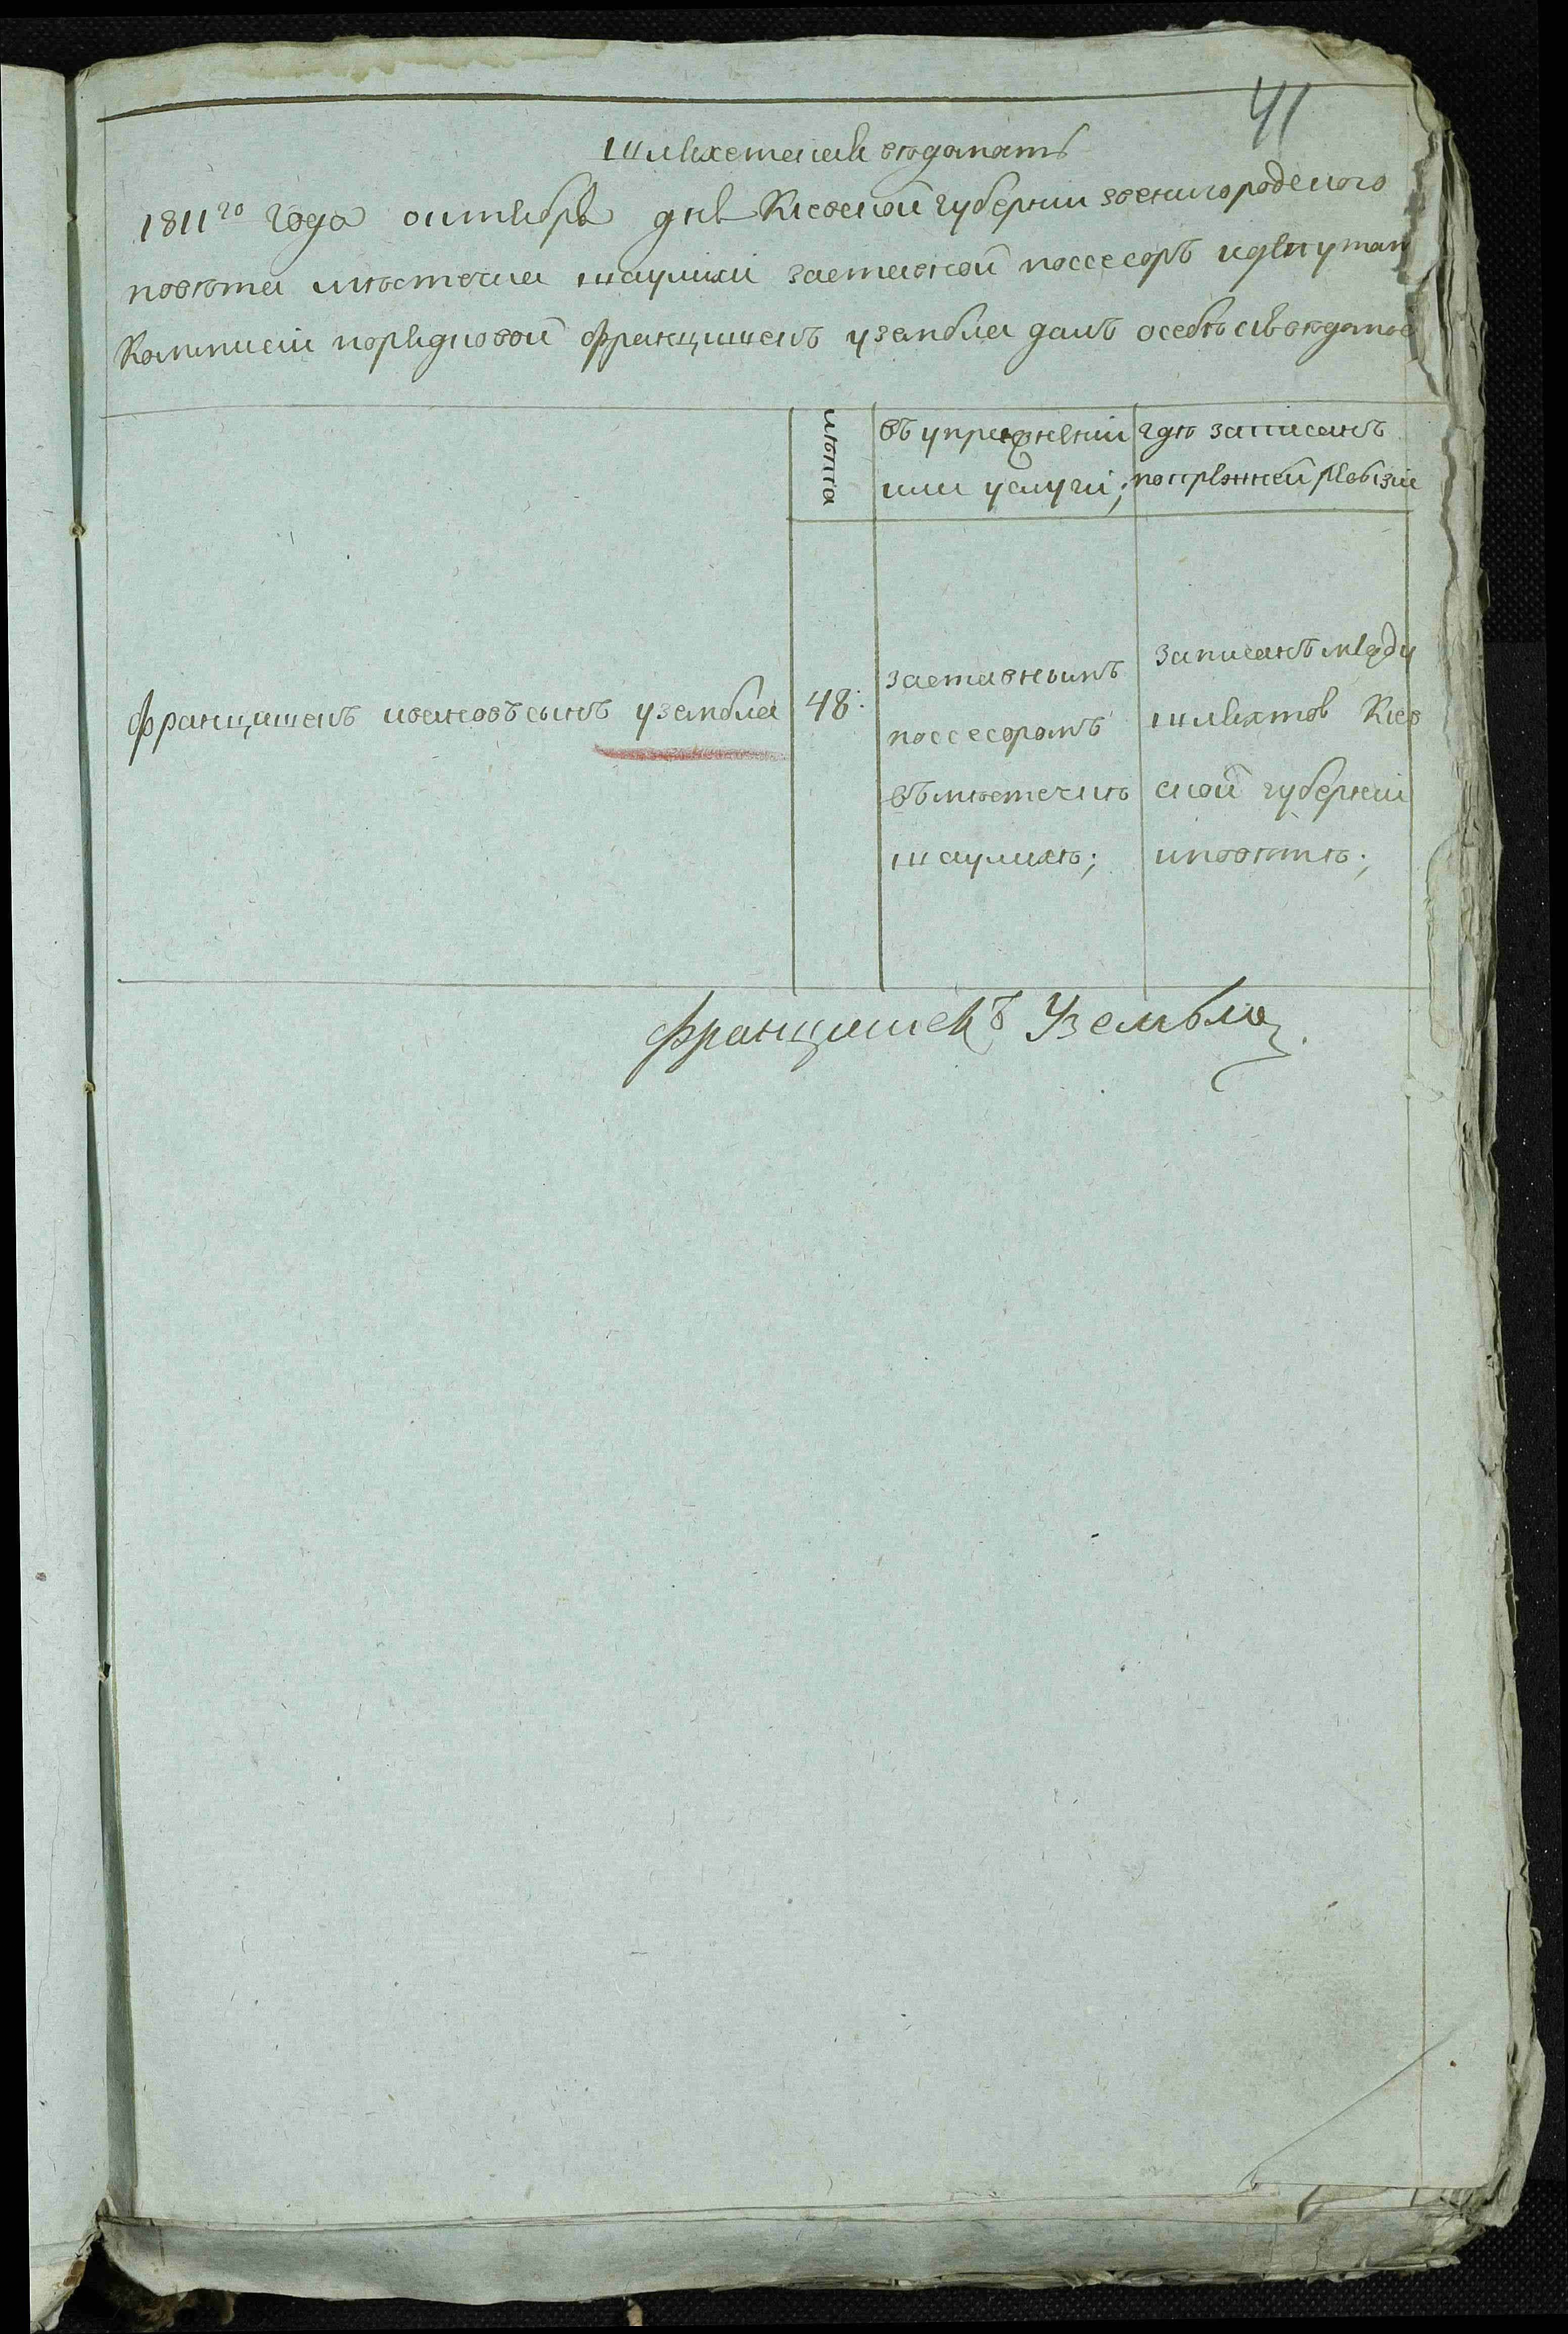 41
Шляхетская вѣдомость
1811го года октября дня Киевской губернии звенигородского
повѣта мѣстечка шаулихи заставной поссесоръ и депутат
Коммисіи порядковой францишекъ уземблa далъ о себѣ сію вѣдомос
лѣта
въ упражненіи
или услуги;
гдѣ записанъ
по прежней Ревизіи
францишекъ ивановъ сынъ уземблa
48:
заставнымъ
поссесоромъ
въ мѣстечкѣ
шаулихѣ;
записанъ между
шляхтов Киев
ской губерніи
и повѣтѣ;
Францишекъ Узембла.